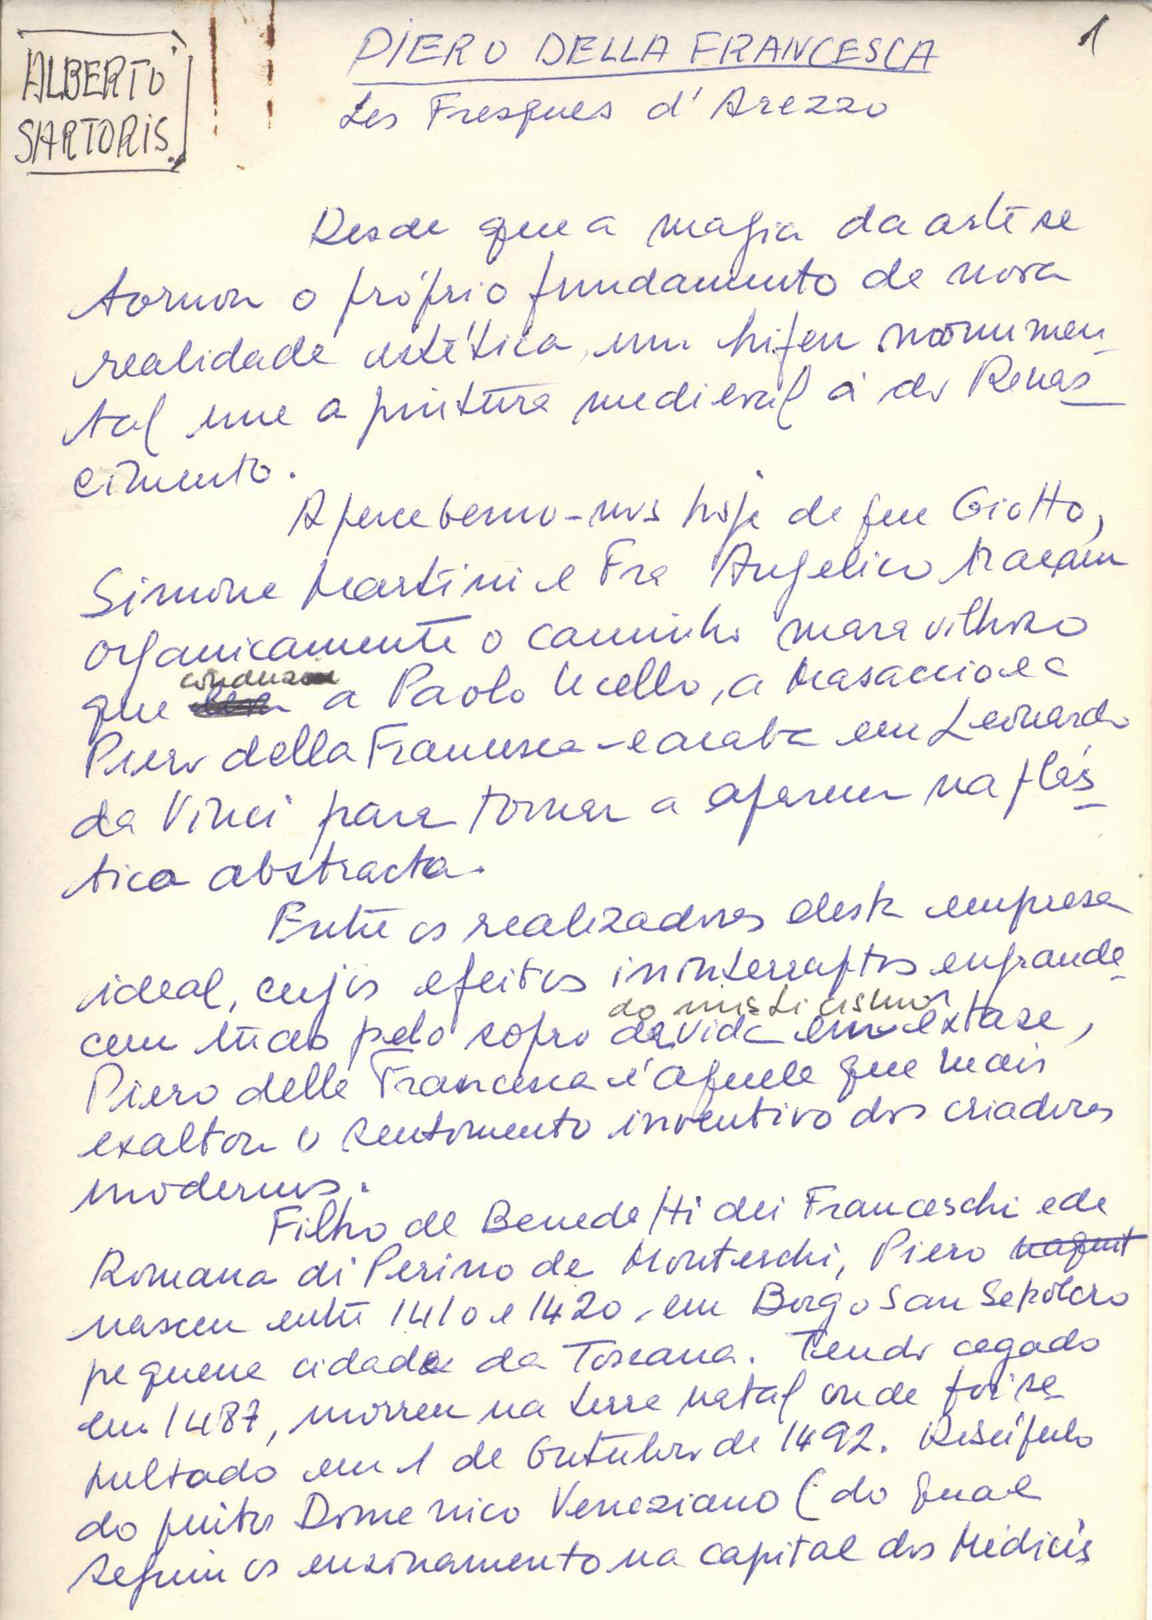 1
ALBERTO
SARTORIS.
PIERO DELLA FRANCESCA
Les Fresques d'Arezzo
Desde que a magia da arte se
tornou o próprio fundamento de nova
realidade estética, um hifen monumen-
tal une a pintura medieval à do Renas-
cimento.
Apercebemo-nos hoje de que Giotto,
Simone Martini e Fra Angelico traçam
organicamente o caminho maravilhoso
conduziu
que a Paolo Ucello, a Masaccio e a
Piero della Francesca - e acaba em Leonardo
da Vinci para tornar a aparecer na plás-
tica abstracta.
Entre os realizadores desta empresa
ideal, cujos efeitos ininterruptos engrande-
do misticismo
cem tudo pelo sopro da vida em extase,
Piero della Francesca é aquele que mais
exaltou o sentimento inventivo dos criadores
modernos.
Filho de Benedetti dei Franceschi e de
Romana di Perino de Monteschi, Piero naquit
nasceu entre 1410 e 1420, em Borgo San Sepolcro
pequena cidade da Toscana. Tendo cegado
em 1487, morreu na terra natal onde foi se-
pultado em 1 de Outubro de 1492. Discípulo
do pintor Domenico Veneziano (do qual
seguiu os ensinamento na capital dos Médicis